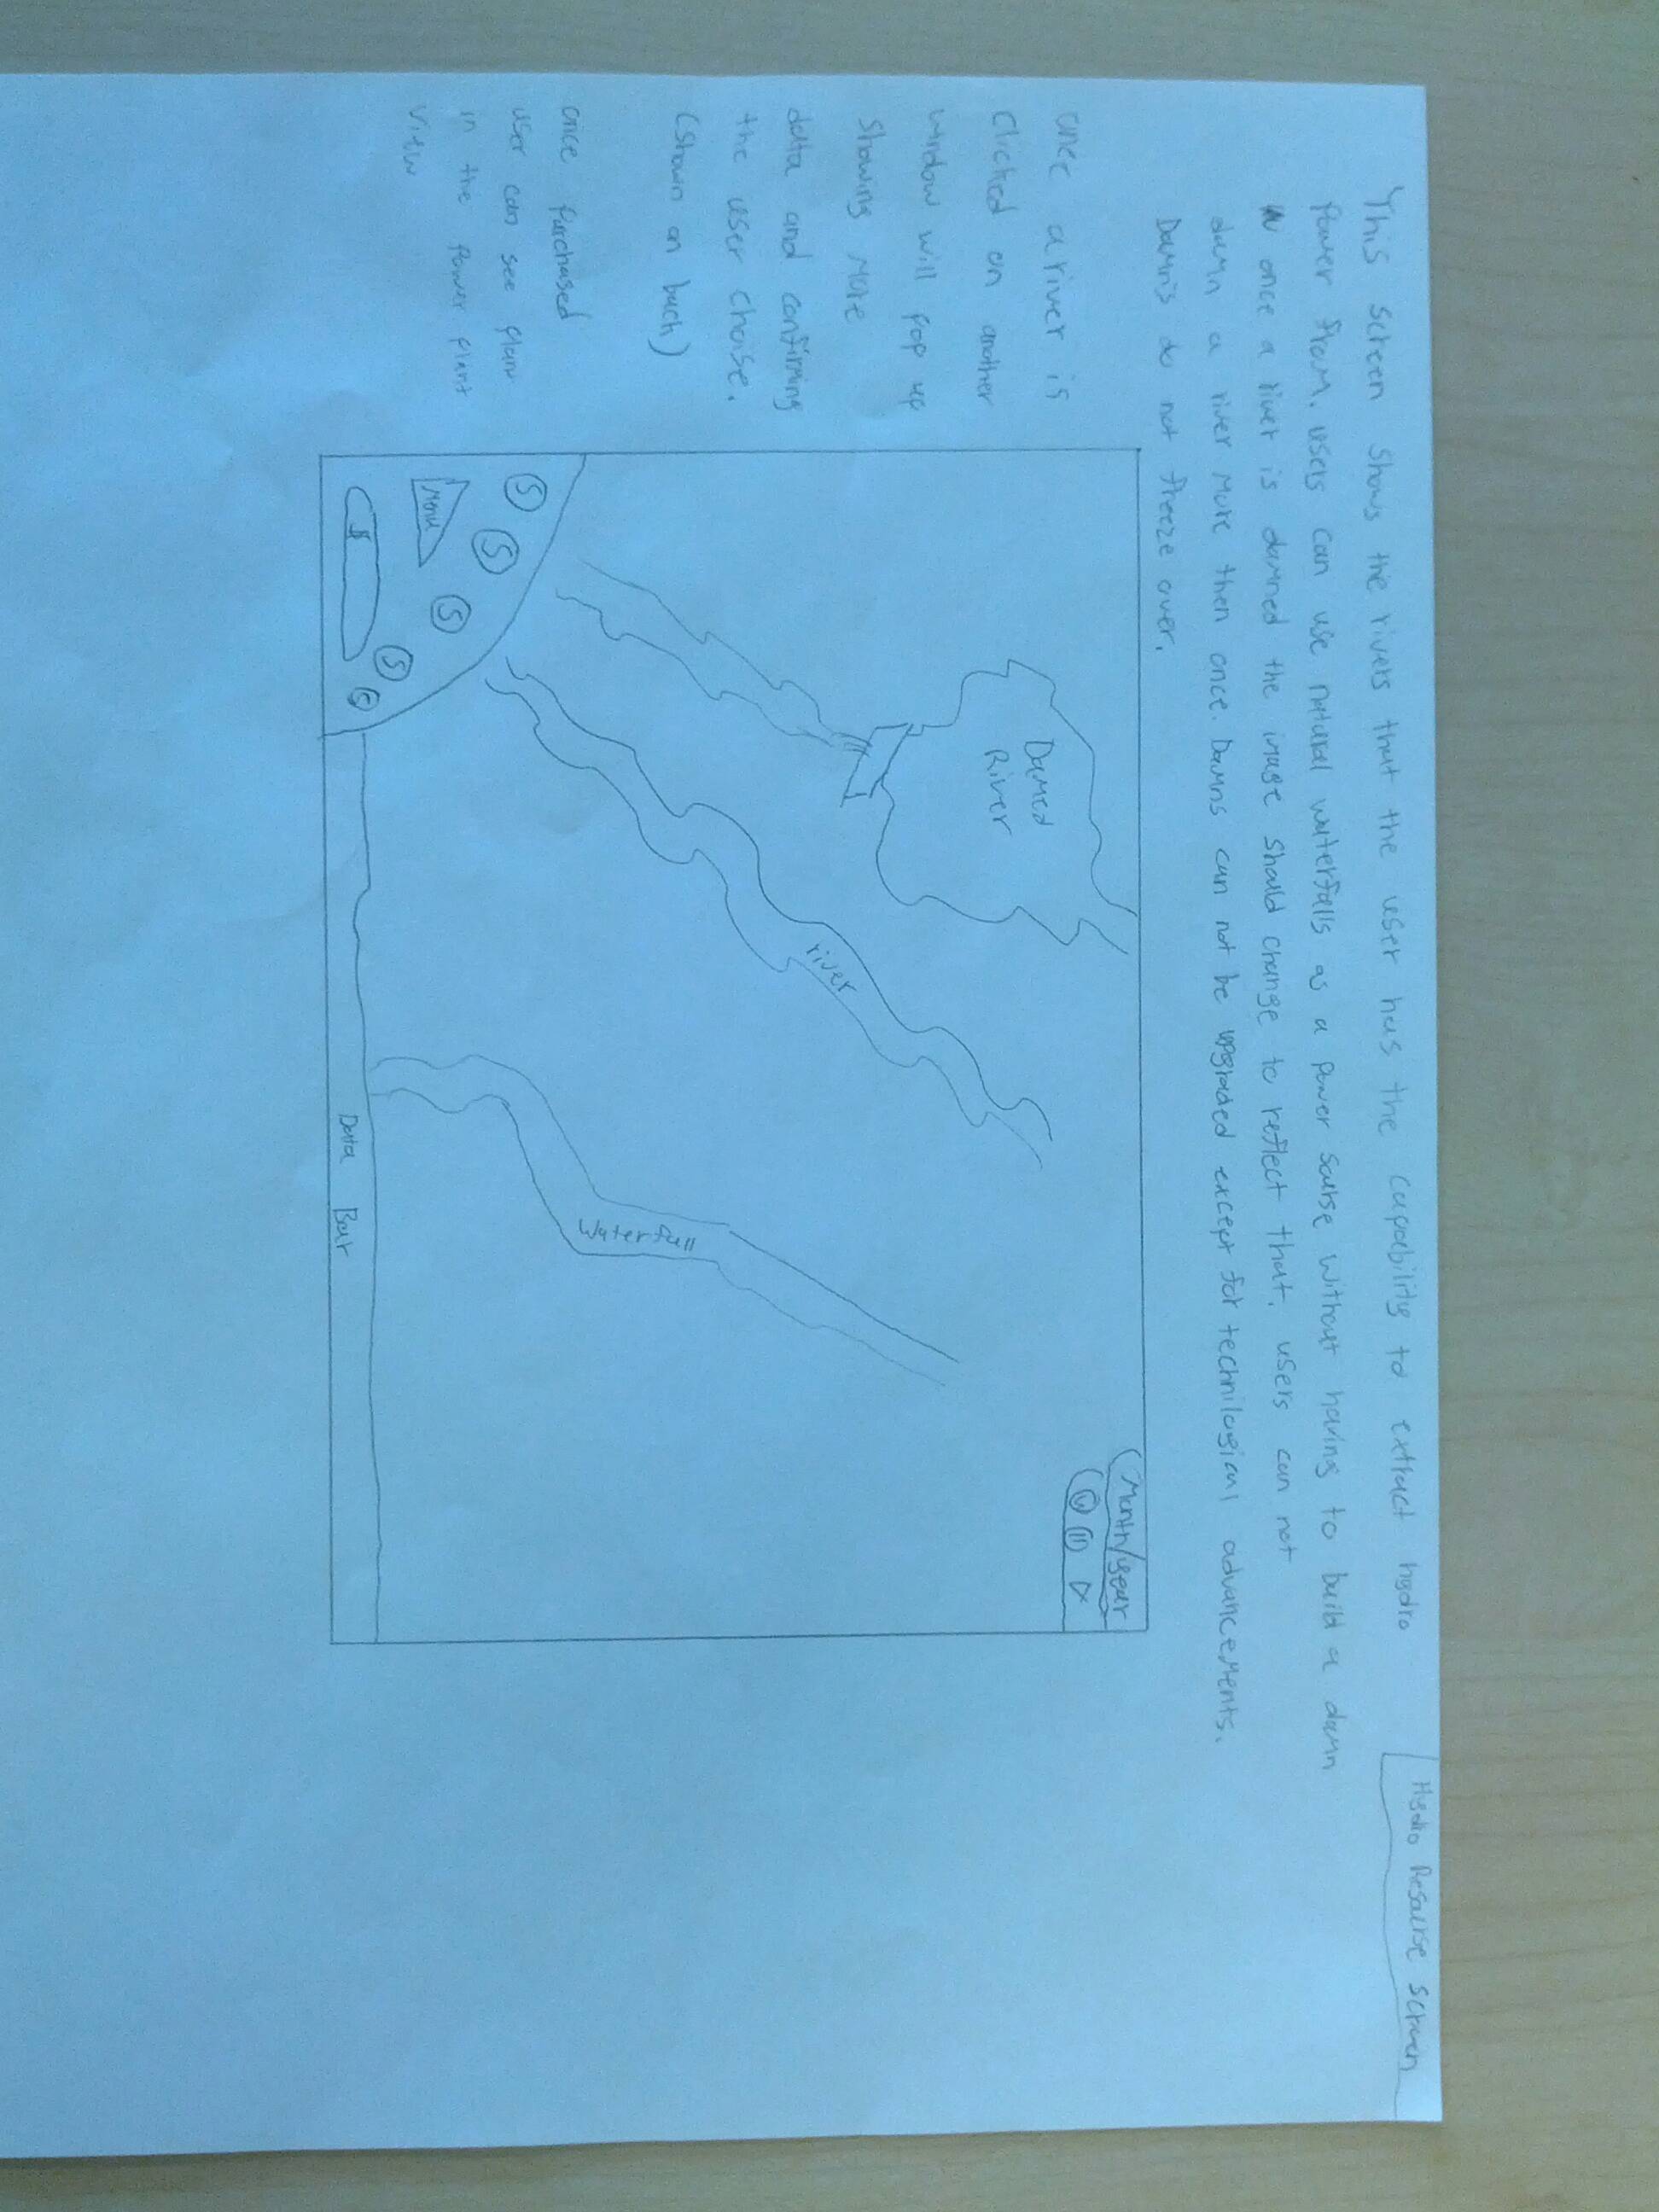 Hydro Resourse Screen
This screen shows the rivers that the user has the capability to extract hydro
Power from. users can use natural waterfalls as a power sourse without having to build a damn
once a river is damned the image should change to reflect that. users can not
damn a river more then once. Damns can not be upgraded except for technilogical advancements.
Damns do not freeze over.
once a river is
clicked on another
window will pop up
showing more
data and confirming
the user choise.
(shown on back)
once purchased
user can see plant
in the power plant
view
Month/year
Damed
River
river
Waterfall
S
S
Menu
S
$
S
Data Bar